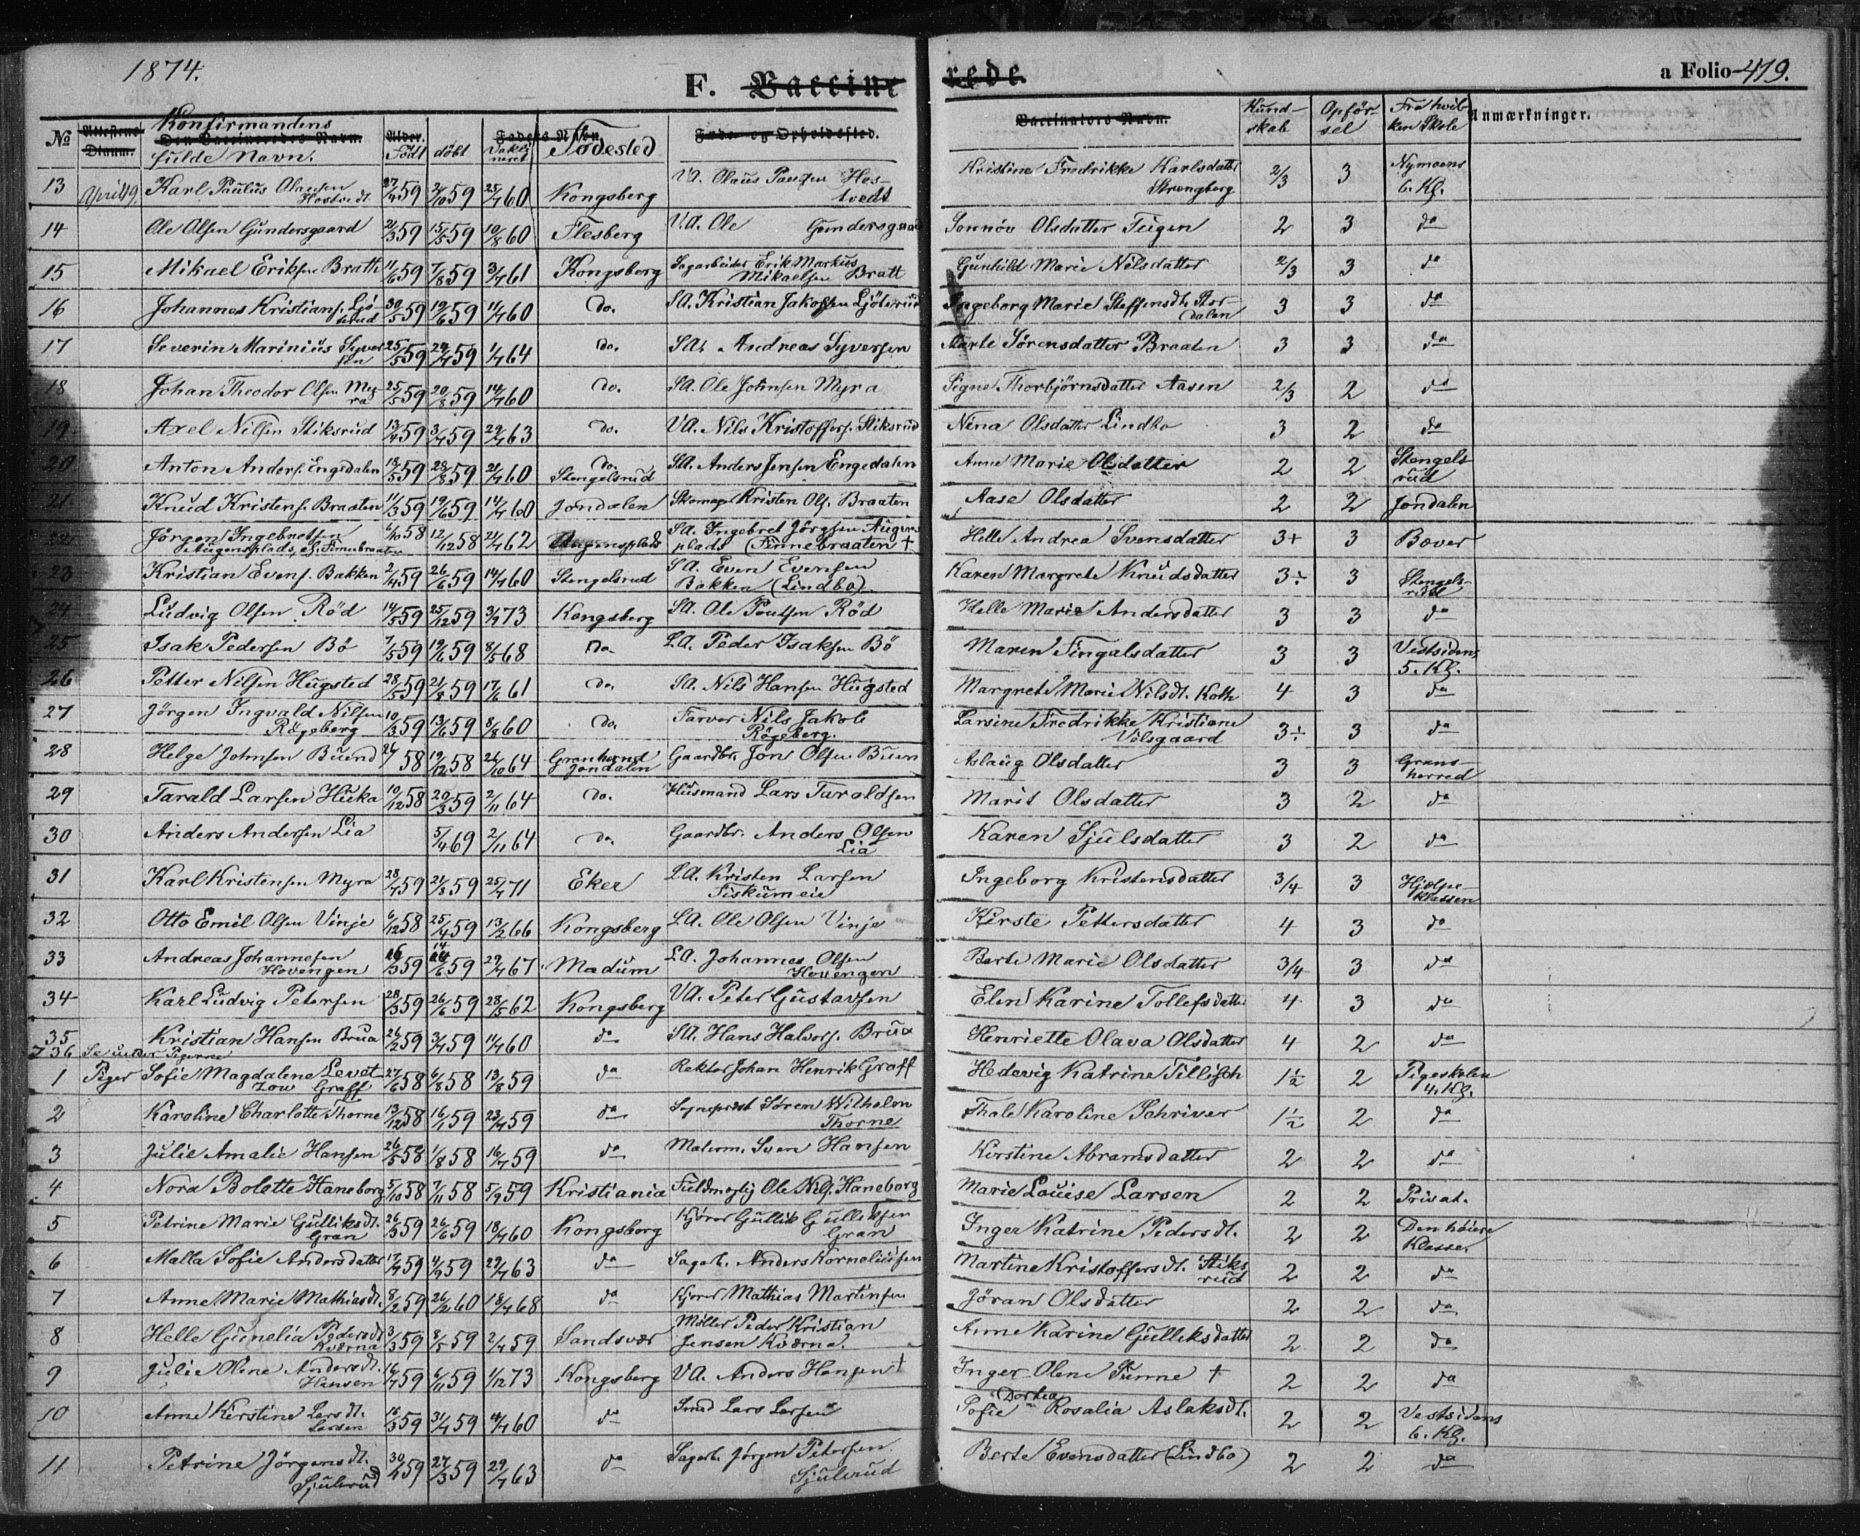 1874.
F. Vaccinerede. a Folio 419.
№ Attestens Datum. Konfirmandens fulde Navn. Den Vaccineredes Navn. Alder. Født døbt Vaksineret Faders Navn. Fødested Føde- og Opholdssted. Vaccinators Navn. Kundskab Opførsel Fra hvilken Skole Anmærkninger.
13 April 19. Karl Paulus Olausen Hostvedt 27/4 59 2/10 59 25/7 60 Kongsberg Va. Olaus Paulsen Hostvedt Kristine Fredrikke Karlsdatter Strengberg 2/3 3 Nymoens 6. Kl.
14 Ole Olsen Gundersgaard 2/3 59 15/5 59 10/8 60 Flesberg Va. Ole Gundersgaard Sonnöv Olsdatter Teigen 2 3 do
15 Mikael Eriksen Bratt 11/6 59 7/8 59 3/7 61 Kongsberg Sagarbeider Erik Markus Mikaelsen Bratt Gunhild Marie Nilsdatter 2/3 3 do
16 Johannes Kristians. Ljöterud 30/5 59 19/6 59 11/7 60 do. Sa. Kristian Jakobsen Ljöterud Ingeborg Marie Steffensdt. Stordalen 3 3 do
17 Severin Marinius Syversen 25/5 59 24/7 59 1/7 64 do. Sa. Andreas Syversen Marte Sörensdatter Braaten 3 3 do
18 Johan Theodor Olsen Myra 25/5 59 20/8 59 14/7 60 do. Sa. Ole Johnsen Myra Signe Thorbjörnsdatter Aasen 2/3 2 do
19 Axel Nilsen Stiksrud 13/4 59 3/7 59 22/7 63 do. Va. Nils Kristoffers. Stiksrud Nina Olsdatter Lindbo 3 2 do
20 Anton Anders. Engedalen 18/5 59 28/8 59 21/7 60 do. Stengelsrud Sa. Anders Jensen Engedalen Anne Marie Olsdatter 2 2 Stengelsrud
21 Knud Kristens. Braaten 11/3 59 19/6 59 14/7 60 Jondalen Skomager Kristen Ols. Braaten Aase Olsdatter 2 2 Jondalen
22 Jörgen Ingebretsen Augensplads, ell. Finnebraaten 6/10 58 12/12 58 21/7 62 Augensplads Sa. Ingebret Jörgsen Augensplads (Finnebraaten † Helle Andrea Svensdatter 3+ 3 Bæver
23 Kristian Evens. Bakken 2/4 59 26/6 59 14/7 60 Stengelsrud Sa. Even Evensen Bakken (Lindbo) Karen Margrete Knudsdatter 3÷ 3 Stengelsrud
24 Ludvig Olsen Röd 14/5 59 25/12 59 3/7 73 Kongsberg Sa. Ole Poulsen Röd Helle Marie Andersdatter 3 3 do
25 Isak Pedersen Bö 7/5 59 19/6 59 8/5 68 do. La. Peder Isaksen Bö Maren Tingalsdatter 3 3 Vestsidens 5. Kl.
26 Petter Nilsen Hugsted 28/5 59 21/8 59 17/6 61 do. Sa. Nils Hansen Hugsted Margrete Marie Nilsdt. Koth 4 3 do
27 Jörgen Ingvald Nilsen Rögeberg 10/3 59 13/6 59 8/8 60 do. Farver Nils Jakob Rögeberg. Larsine Fredrikke Kristiane Volsgaard 3÷ 3 do
28 Helge Johnsen Buend 24/7 58 19/12 58 26/10 64 Granherred Jondalen Gaardbr. Jons Olsen Buen Aslaug Olsdatter 3 3 Gransherred
29 Tarald Larsen Huka 10/12 58 20/3 59 2/11 64 do. Husmand Lars Taraldsen Marit Olsdatter 3 2 do
30 Anders Andersen Lia 5/4 69 2/11 64 do. Gaardbr. Anders Olsen Lia Karen Sjulsdatter 3 2 do
31 Karl Kristensen Myra 28/4 59 21/8 59 25/7 71 Eker La. Kristen Larsen Fiskumeie Ingeborg Kristensdatter 3/4 3 Hjælpeklassen
32 Otto Emil Olsen Vinje 6/12 58 25/4 59 13/2 66 Kongsberg La. Ole Olsen Vinje Kirste Pettersdatter 4 3 do
33 Andreas Johannesen Hovengen 26/3 59 14/6 59 29/7 67 Modum La. Johannes Olsen Hovengen Berte Marie Olsdatter 3/4 3 do
34 Karl Ludvig Petersen 28/3 59 26/6 59 28/5 62 Kongsberg Va. Peter Gustavsen Elen Karine Tollefsdatter 4 3 do
35 Kristian Hansen Brua 26/2 59 3/7 59 11/7 60 do Sa. Hans Halvors. Brua Henriette Olava Olsdatter 4 2 do
36 Se under Pigerne
1 Piger Sofie Magdalene Levetzow Graff 27/6 58 6/8 58 13/8 59 do Rektor Johan Henrik Graff Hedevig Katrine Tillisch 1½ 2 Pigeskolen 4. Kl.
2 Karoline Charlotte Thorne 13/12 58 16/1 59 23/7 59 do Sogneprest Sören Wilhelm Thorne Thale Karoline Schriver 1½ 2 do
3 Julie Amalie Hansen 26/5 58 1/8 58 16/7 59 do Malerm. Sven Hansen Kirstine Abramsdatter 2 2 do
4 Nora Bolette Haneborg 5/10 58 7/11 58 5/9 59 Kristiania Fuldmægtig Ole Nils. Haneborg Marie Louise Larsen 2 2 Privat.
5 Petrine Marie Gulliksdt. Gran 26/3 59 26/6 59 18/7 60 Kongsberg Kjörer Gullik Gulliksen Gran Inger Katrine Pedersdt. 2 2 Den höiere Klasse.
6 Malla Sofie Andersdatter 17/7 59 4/9 59 29/7 63 do Sagarb. Anders Korneliusen Martine Kristoffersdt. Stiksrud 2 2 do
7 Anne Marie Mathiasdt. 8/2 59 26/2 60 18/7 68 do Kjörer Mathias Martinsen Jöran Olsdatter 2 2 do
8 Helle Gunelia Pedersdt Kværna 3/3 59 8/5 59 2/7 59 Sandsvær Möller Peder Kristian Jensen Kværna. Anne Karine Gulliksdatter 2 2 do
9 Julie Oline Andersdt. Hansen 16/7 59 6/11 59 1/12 73 Kongsberg Va. Anders Hansen † Inger Olene Funne † 2 2 do
10 Anne Kirstine Larsdt. Larsen 16/3 59 31/7 59 14/7 60 do Smed Lars Larsen Sofie Dortea Rosalia Aslaksdt. 2 2 Vestsidens 6. Kl.
11 Petrine Jörgensdt. Sjulerud 30/1 59 27/3 59 29/7 63 do Sagarb. Jörgen Petersen Sjulerud Berte Evensdatter (Lindbo) 2 2 do